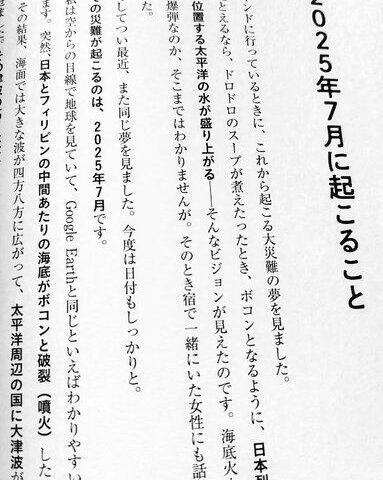 2025年7月に起こること
ンドに行っているときに、これから起こる大災難の夢を見ました。
とえるなら、ドロドロのスープが煮えたったとき、ボコンとなるように、日本列
位置する太平洋の水が盛り上がる――そんなビジョンが見えたのです。海底火
爆弾なのか、そこまではわかりませんが。そのとき宿で一緒にいた女性にも話
た。
してつい最近、また同じ夢を見ました。今度は日付もしっかりと。
の災難が起こるのは、2025年7月です。
私は空からの目線で地球を見ていて、Google Earthと同じといえばわかりやすい
ます。突然、日本とフィリピンの中間あたりの海底がボコンと破裂（噴火）した
その結果、海面では大きな波が四方八方に広がって、太平洋周辺の国に大津波が